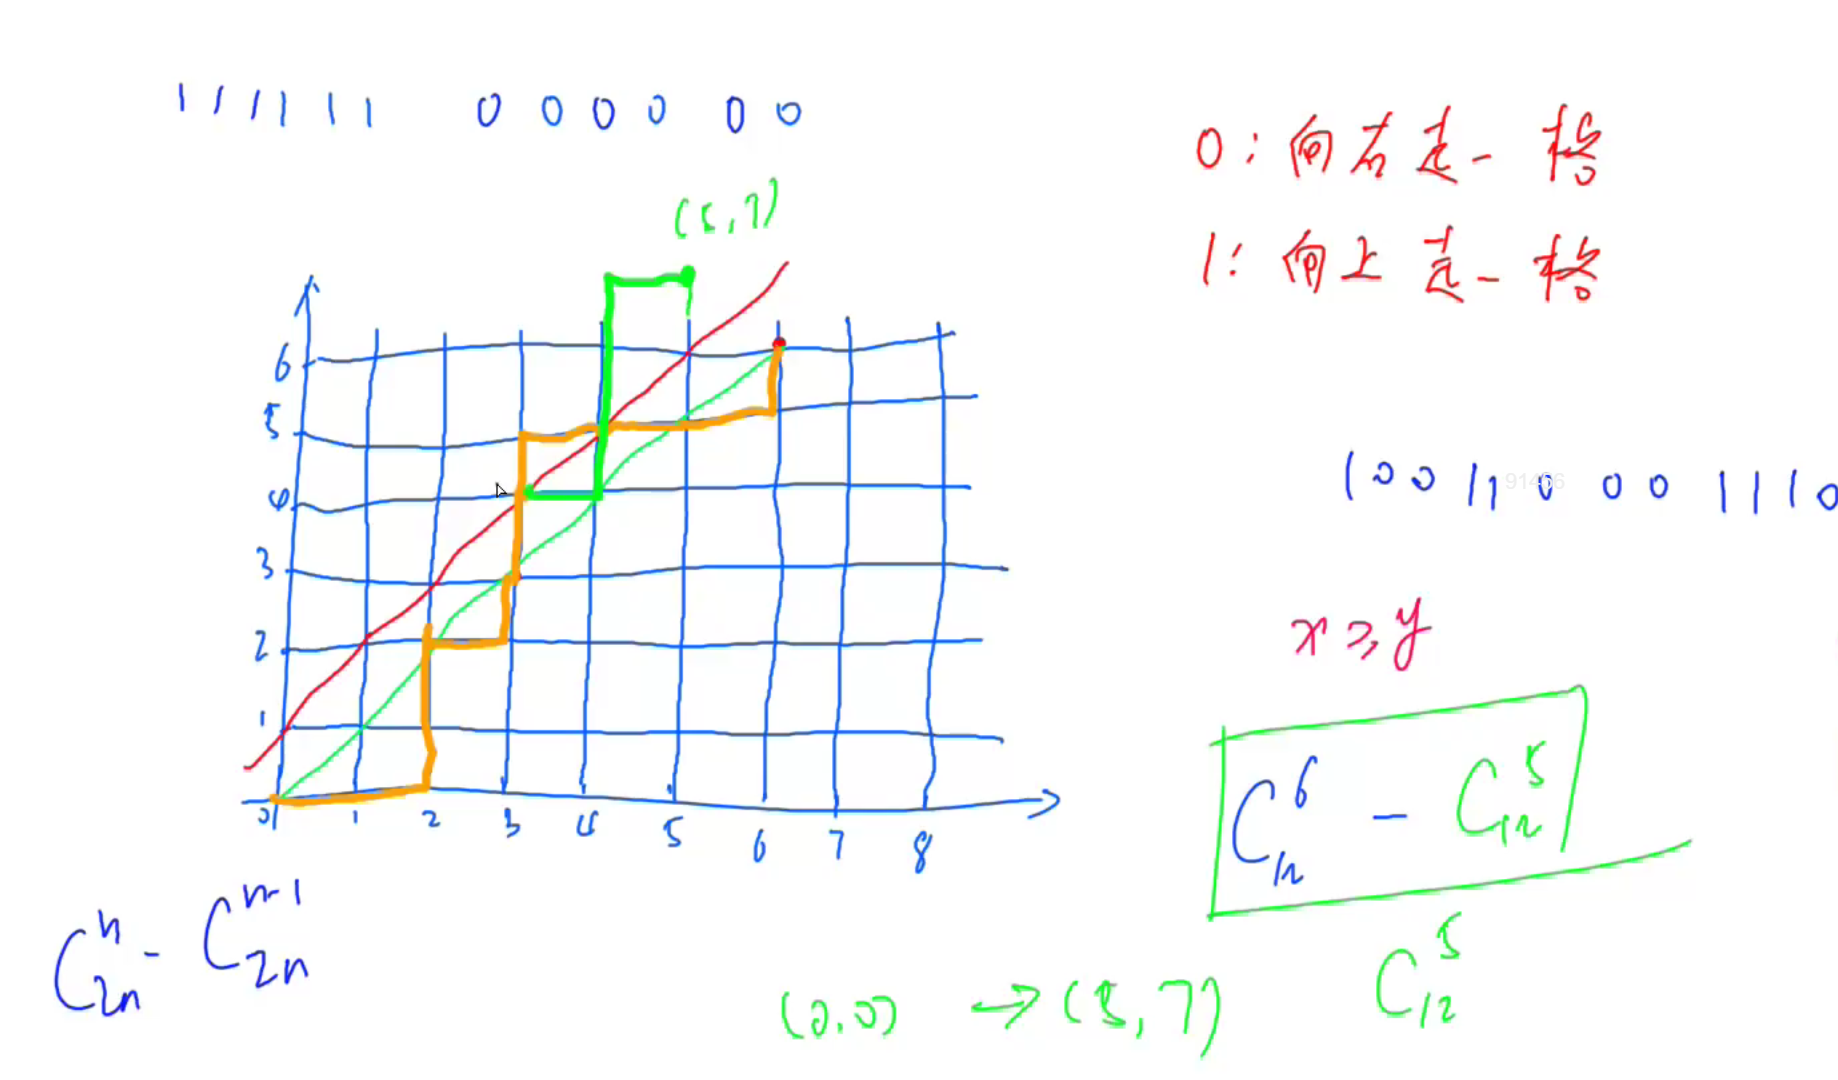 1 1 1 1 1 1 0 0 0 0 0 0
0: 向右走一格
1: 向上走一格
(5,7)
6
5
4
3
2
1
0 1 2 3 4 5 6 7 8
1 0 0 1 1 0 0 0 1 1 1 0
91456
x ≥ y
C₁₂⁶ - C₁₂⁵
C₂ₙⁿ - C₂ₙⁿ⁻¹
(0,0) → (5,7)
C₁₂⁵